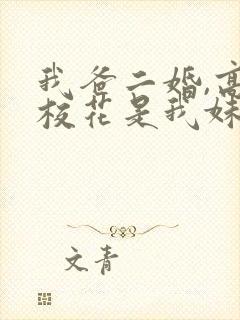 我爸二婚,高
校花是我妹
文青